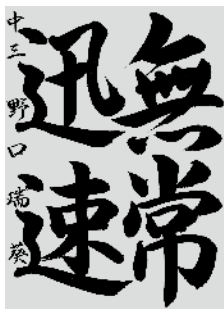 無常
迅速
中三 野口瑞葵